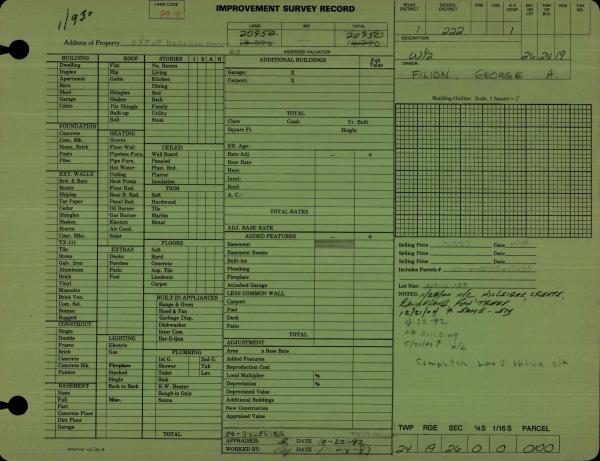 IMPROVEMENT SURVEY RECORD
1/93
LAND CODE
LAND IMP. TOTAL
20952 20950
Address of Property OFF OF
ASSESSED VALUATION
ROAD DISTRICT SCHOOL DISTRICT FIRE CEM. A.P. HOSP. SEC OR LOT TWP OR BLK RGE TAX NO.
222 1
W1/2 26 24 19
OWNER
FILION, GEORGE A.
BUILDING ROOF STORIES 1 2 A B
Dwelling Flat No. Rooms
Duplex Hip Living
Apartment Gable Kitchen
Barn Dining
Shed Shingles Bed
Garage Shakes Bath
Cabin Pat Shingle Family
Built-up Utility
Roll Nook
FOUNDATION
Concrete HEATING
Conc. Blk. Stoves CEILED
Stone, Brick Floor-Wall Wall Board
Posts Pipeless Furn. Paneled
Piles Pipe Furn. Plast. Brd.
Hot Water Plaster
EXT. WALLS Ceiling Insulation
Brd. & Bats Heat Pump TRIM
Rustic Floor Rad. Soft
Shiplap Base B. Rad. Hardwood
Tar Paper Panel Rad. Tile
Cedar Oil Burner Marble
Shingles Gas Burner Metal
Shakes Electric
Stucco Air Cond.
Conc. Blks. Solar FLOORS
TX-111 Soft
Tile EXTRAS Hard
Stone Decks Concrete
Galv. Iron Porches Asp. Tile
Aluminum Patio Linoleum
Brick Pool
Vinyl
Masonite
Brick Ven. BUILT-IN APPLIANCES
Com. Sel. Range & Oven
Roman Hood & Fan
Rugged Garbage Disp.
CONSTRUCT. Dishwasher
Single Inter Com.
Double LIGHTING Bar-B-Que
Frame Electric
Brick Gas PLUMBING
Concrete 1st G. 2nd G.
Concrete Fireplace Shower Tub
Pumice Stacked Toilet Lav.
Single Sink
BASEMENT Back to Back H.W. Heater
None Rough-in Only
Full Misc. Sauna
Part
Concrete Floor
Dirt Floor
Garage TOTAL
ADDITIONAL BUILDINGS Full Value
Garage: X
Carport: X
TOTAL
Class Cond. Yr. Built
Square Ft. Height
Eff. Age:
Rate Adj. - +
Base Rate
Heat:
Insul:
Roof:
A. C.:
TOTAL RATES
ADJ. BASE RATE
ADDED FEATURES - +
Basement
Basement Rooms
Built-ins
Plumbing
Fireplace
Attached Garage
LESS COMMON WALL
Carport
Pool
Deck
Patio
TOTAL
ADJUSTMENT
Area x Base Rate
Added Features
Reproduction Cost
Local Multiplier %
Depreciation %
Depreciated Value
Additional Buildings
New Construction
Appraised Value
APPRAISER: DATE 9-22-92
WORKED BY: DATE
Building Outline: Scale, 1 Square = 2'
Selling Price Date
Selling Price Date
Selling Price Date
Includes Parcels #
Lot Size:
NOTES: N/C HILLSIDE, CREEK,
12/21/04 SAME
9-22-92
NO BUILDING
N/C
Computer Land Value
TWP RGE SEC 1/4 S 1/16 S PARCEL
24 19 26 0 0 000